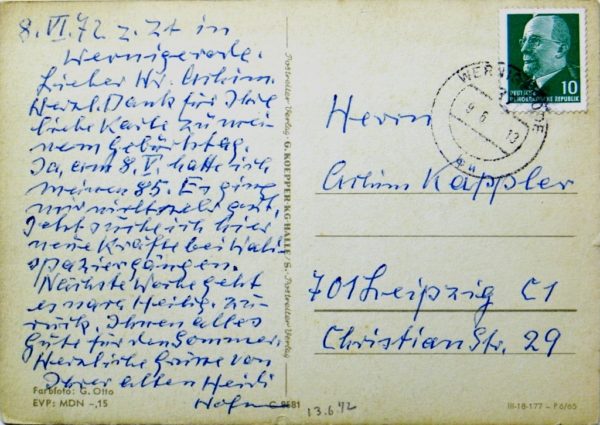 8. VI. 72 z. Zt in
Wernigerode.
Lieber Hr. Achim.
Herzl. Dank für Ihre
liebe Karte zu mei-
nem Geburtstag.
Ja, am 8. V. hatte ich
meinen 85. Es ging
mir nicht sehr gut.
Jetzt suche ich hier
neue Kräfte bei Wald-
spaziergängen.
Nächste Woche geht
es nach Heilig. zu-
rück. Ihnen alles
Gute für den Sommer.
Herzliche Grüsse von
Ihrer alten Heidi
Farbfoto: G. Otto
EVP: MDN -,15
C 8581
13.6.72
Postreiter Verlag · G. KOEPPER · KG · HALLE / S. · Postreiter Verlag
DEUTSCHE
DEMOKRATISCHE REPUBLIK
10
WERNIGERODE
9.6.
13
Herrn
Achim Kappler
701 Leipzig C1
Christianstr. 29
III-18-177 – P 6/65